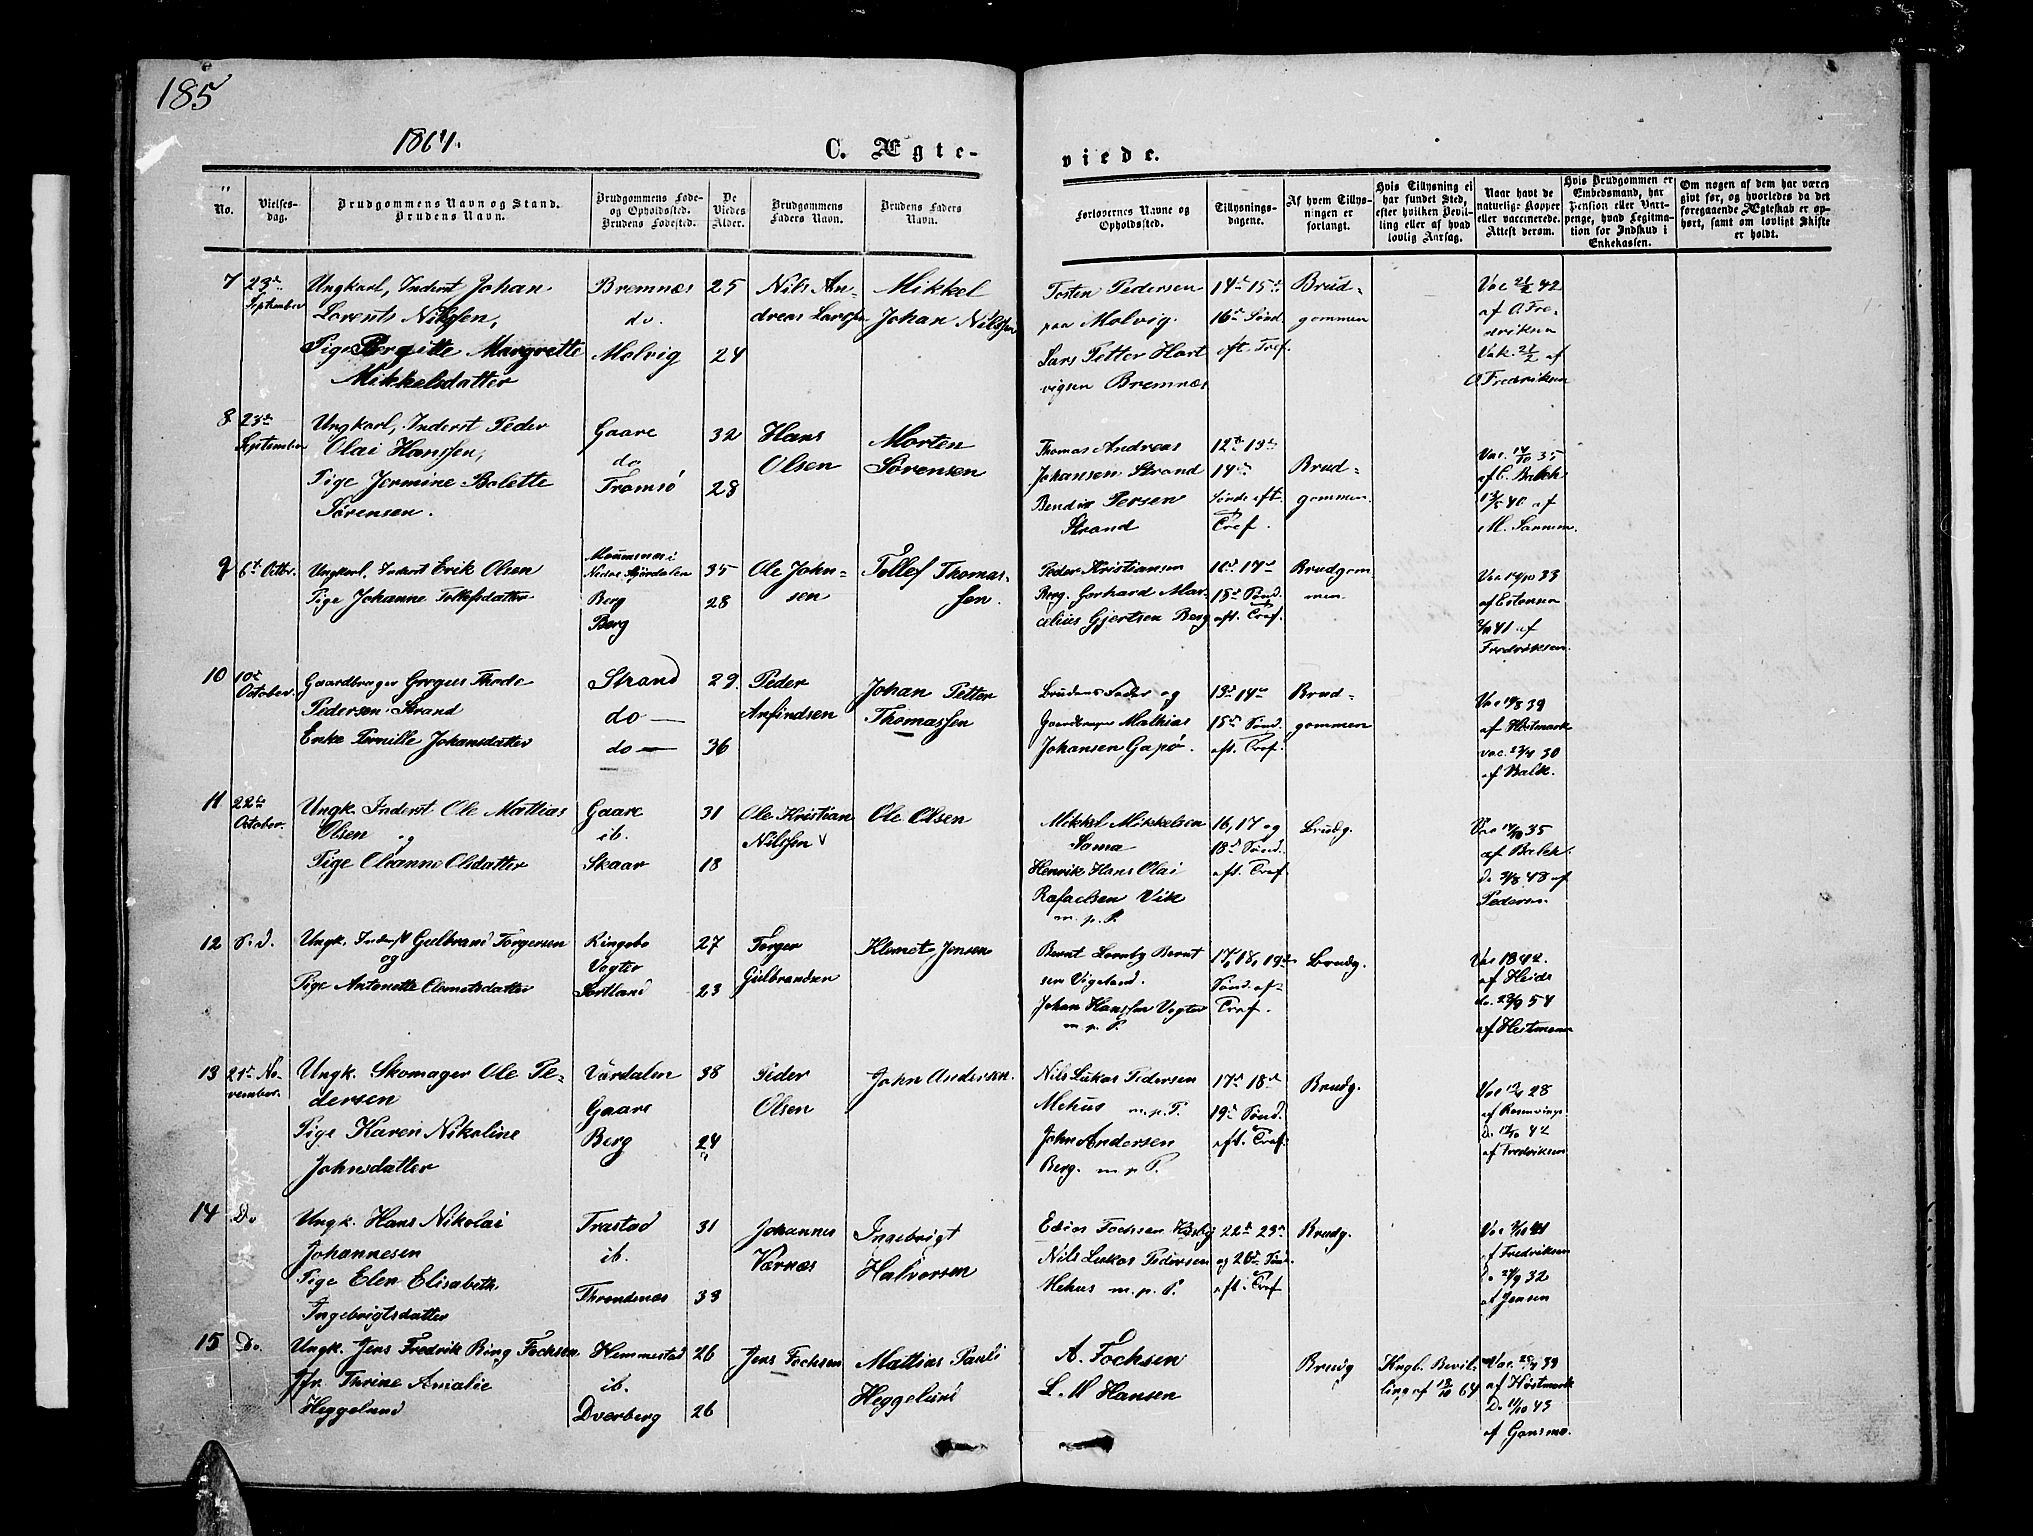 185
1864.
C. Ægte-
viede.
No.
Vielses-
dag.
Brudgommens Navn og Stand.
Brudens Navn.
Brudgommens Føde-
og Opholdssted.
Brudens Fødested.
De
Viedes
Alder.
Brudgommens
Faders Navn.
Brudens Faders
Navn.
Forlovernes Navne og
Opholdssted.
Tillysnings-
dagene.
Af hvem Tillys-
ningen er
forlangt.
Hvis Tillysning ei
har fundet Sted,
efter hvilken Bevil-
ling eller af hvad
lovlig Aarsag.
Naar havt de
naturlige Kopper
eller vaccinerede.
Attest derom.
Hvis Brudgommen er
Enbedsmand, har
Pension eller Vart-
penge, hvad Legitima-
tion for Indskud i
Enkekassen.
Om nogen af dem har været
givt før, og hvorledes da det
foregaaende Ægteskab er op-
hørt, samt om lovligt Skifte
er holdt.
7
23de
September
Ungkarl, Inderst Johan
Lorents Nilssen,
Pige Bergitte Margrette
Mikkelsdatter
Bremnæs
do.
Molvig
25
24
Nils An-
dreas Larssen
Mikkel
Johan Nilssen
Tosten Pedersen
paa Molvig.
Lars Petter Hart
vigsen Bremnæs
14de 15de
16de Sönd.
eft. Tref.
Brud-
gommen
Vac 2/2 42
af O Fre-
driksen
Vak. af
O Fredriksen
8
23de
September
Ungkarl, Inderst Peder
Olai Hanssen,
Pige Jermine Bolette
Sørensen.
Gaare
do
Tromsö
32
28
Hans
Olsen
Morten
Sörensen
Thomas Andreas
Johansen Strand
Bendix Persen
Strand
12te 13de
14de
Sönds eft.
Tref.
Brud-
gommen.
Vac. 14/10 35
af C. Balch
40 af
M. Sannem.
9
6te Octbr.
Ungkarl, Inderst Erik Olsen
Pige Johanne Tollefsdatter
Nedre Stjördalen
Berg
Berg
35
28
Ole John-
sen
Tollef Thomas-
sen.
Peder Kristiansen
Berg. Gerhard Mar-
celius Gjertsen Berg
16de 17de
18de Sönd.
eft. Tref.
Brudgom
men.
Vac 14/10 33
af Estensen
41 af
Fredriksen.
10
10de
October.
Gaardbruger Gregus Thode
Pedersen Strand
Enke Pernille Johansdatter
Strand
do —
do —
29
36
Peder
Anfindsen
Johan Petter
Thomassen
Brudens Fader og
Gaardbruger Mathias
Johansen Gapø.
13de 14de
15de Sönd.
eft. Tref.
Brud-
gommen
39
af Höstmark
vac. 30
af Balk.
11
22de
October.
Ungk. Inderst Ole Mattias
Olsen og
Pige Oleanna Olsdatter
Gaare
ib.
Skaar
31
18
Ole Kristian
Nilssen
Ole Olsen
Mikkel Mikkelsen
Sama
Henrik Hans Olai
Rafaelsen Vik
m. p. P.
16, 17 og
18de Sönd.
eft. Tref.
Brudg.
Vac 14/10 35
af Balch.
Do 48 af
Pedersen
12
S. d.
Ungk. Inderst Gulbrand Torgersen
og
Pige Antonette Clemetsdatter
Ringebo
Vogter
Sortland
27
23
Torger
Gulbrandsen
Klemet Jensen
Bernt Bernt
sen Vigeland.
Johan Hanssen Vogter
m. p. P.
17, 18, 19de
Sönd. ef-
Tref.
Brudg.
Vac 1842.
af Heide
do. 23/9 54
af Hestmann
13
21de No-
vember.
Ungk. Skomager Ole Pe-
dersen
Pige Karen Nikoline
Johnsdatter
Værdalen
Gaare
Berg
38
24
Peder
Olsen
John Andersen.
Nils Lukas Pedersen
Mehus m.p.P.
John Andersen
Berg. m p P.
17de 18de
19de Sönd.
eft. Tref.
Brudg.
Vac 28
af Rosenvinge
Do 42
af Fredriksen
14
Do
Ungk. Hans Nikolai
Johannesen
Pige Elen Elisabeth
Ingebrigtsdatter
Trastad
ib.
Throndenæs
31
33
Johannes
Værnæs
Ingebrigt
Halvorsen
Edias Fochsen
Nils Lukas Pedersen
Mehus m. p. P.
22de 23de
og 26de Sönd.
eft. Tref
Brudg.
Vac 41
af Fredriksen
Do 27/9 32
af Jensen
15
Do.
Ungk. Jens Fredrik Bing Fochsen
Jfr. Thrine Amalie
Heggelund
Hemmestad
ib.
Dverberg
26
26
Jens Fochsen
Mattias Pauli
Heggelund
A. Fochsen
L. M Hansen
Brudg
Kngl. Bevil-
ling af 13/10 64
Vac. 39
af Höstmark
Do 11/10 43
af Gansmo.